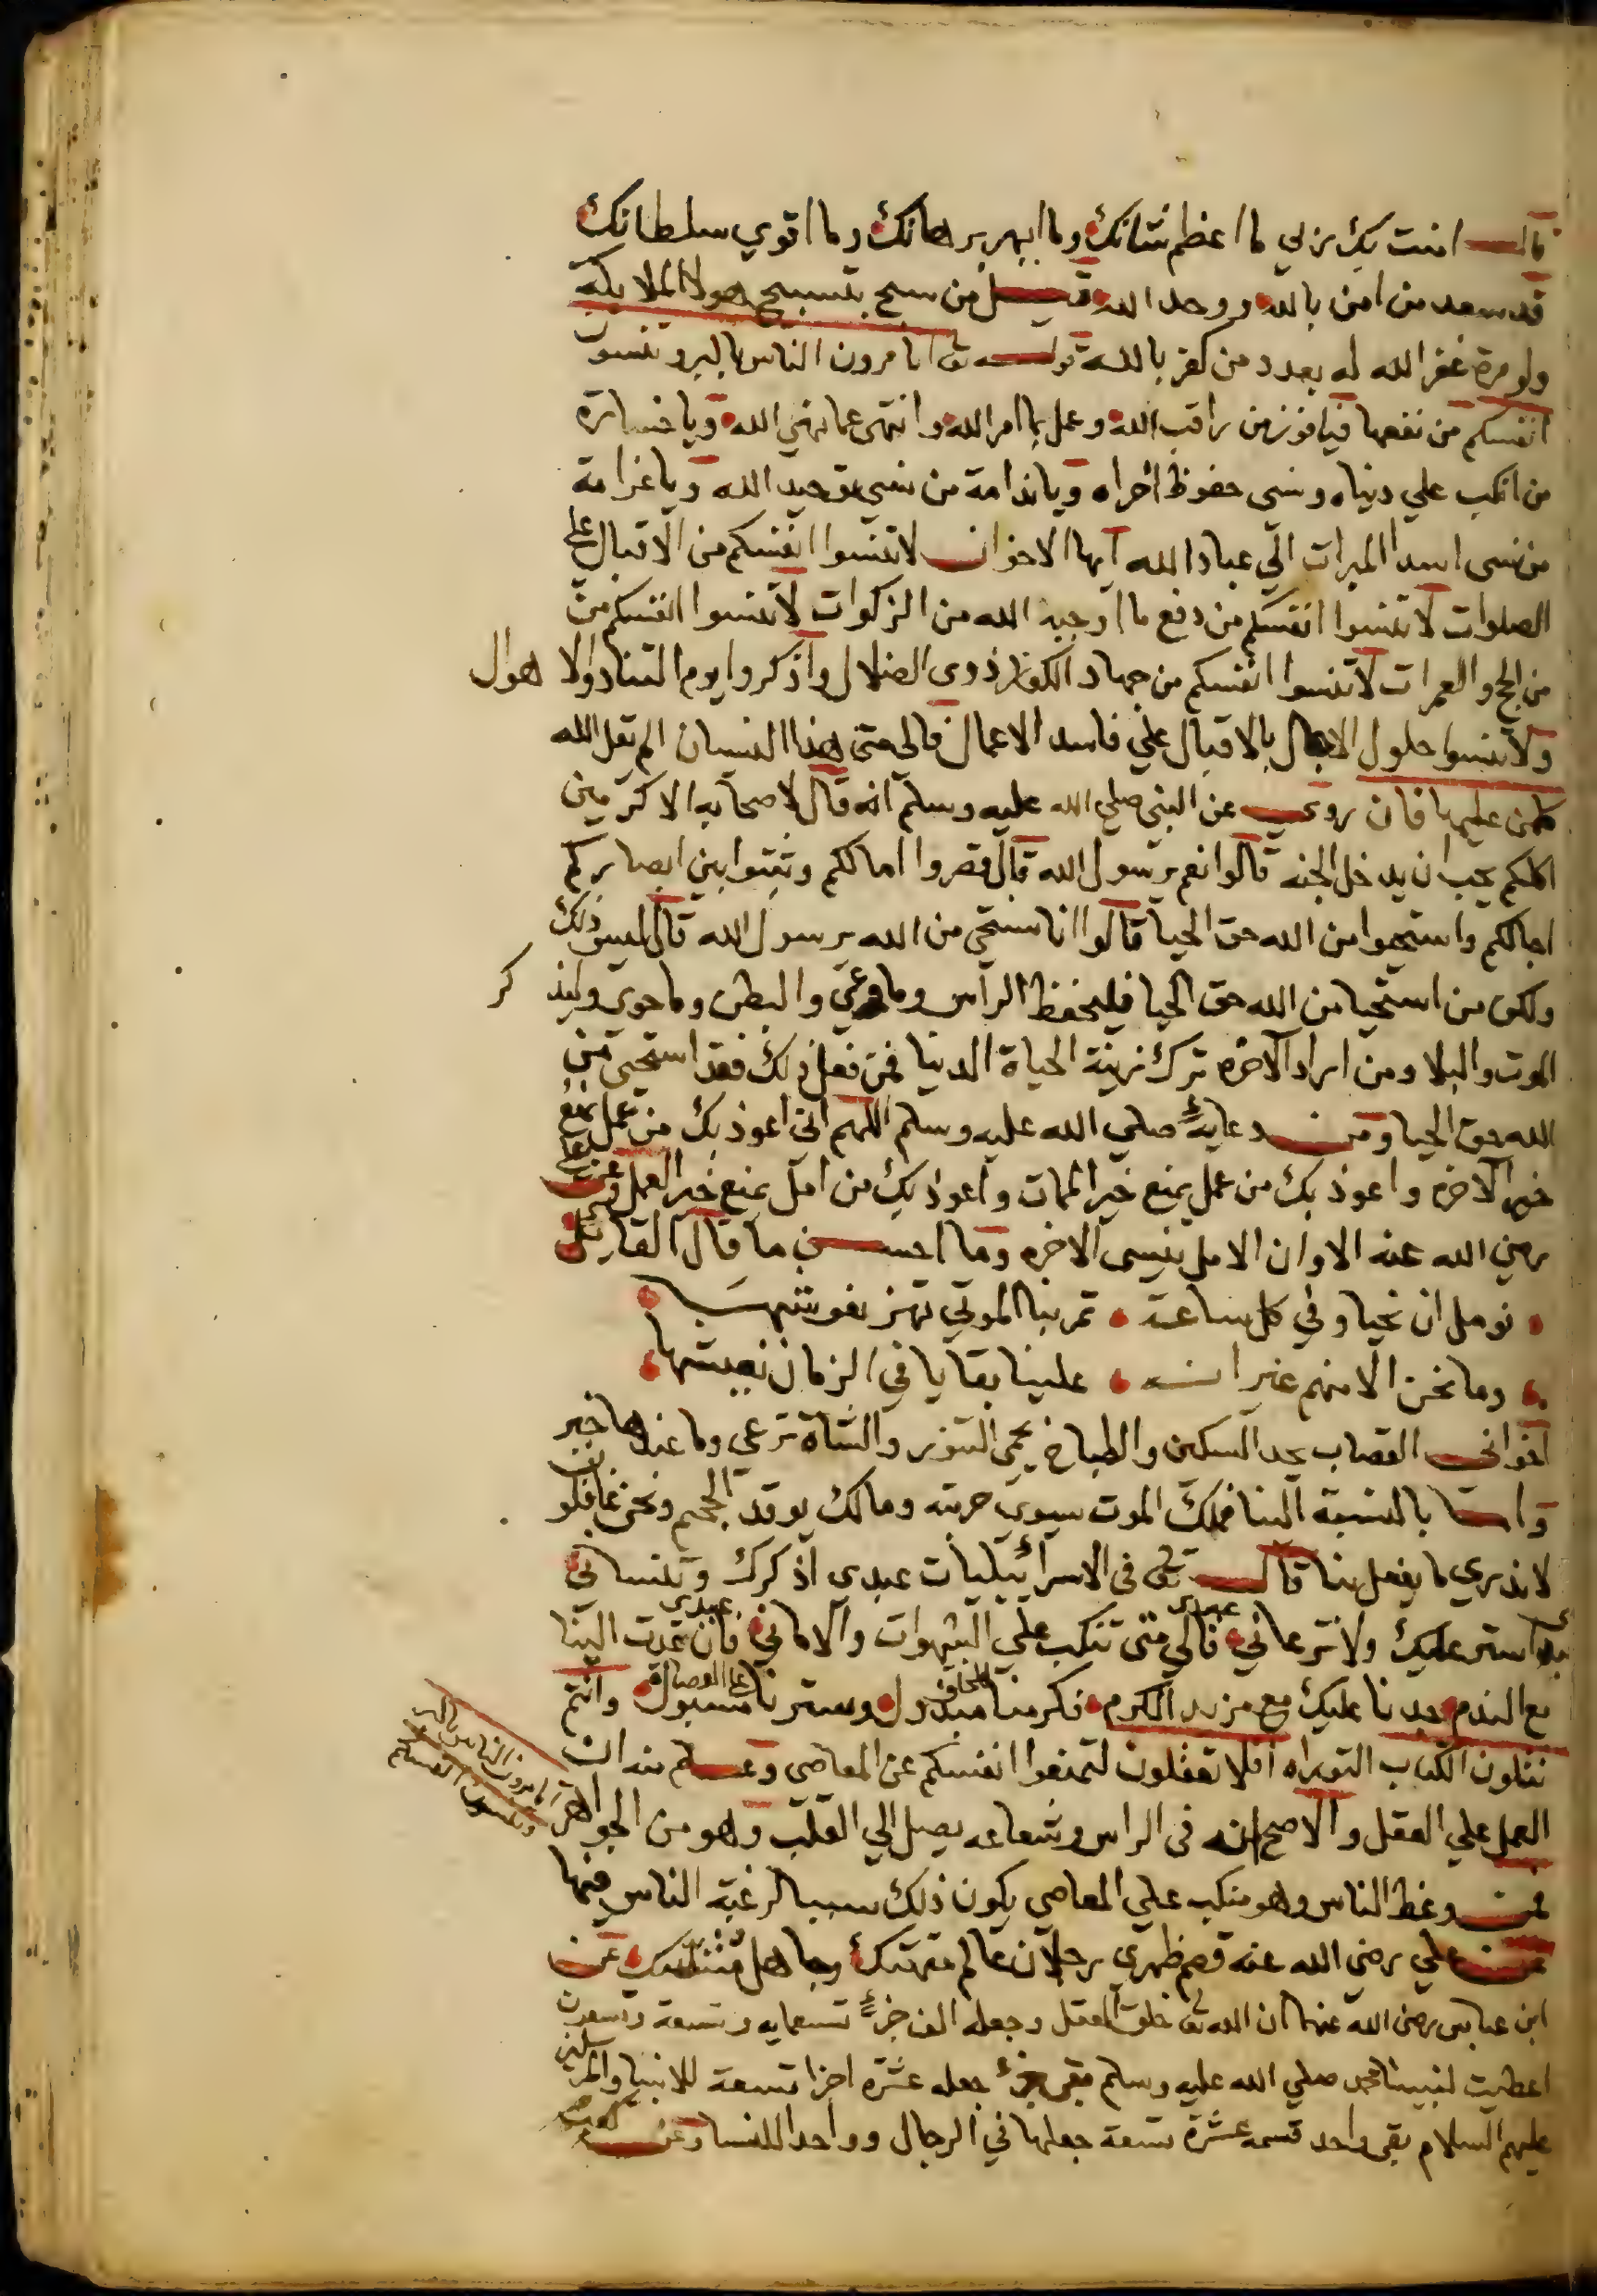 قالت امنت بك ربي ما اعظم شانك وما ابهر برهانك وما اقوي سلطانك
قد سعد من امن بالله ووحد الله قيل من سبح بتسبيح هولا الملايكة
ولو مرة غفر الله له بعدد من كفر بالله قوله تع اتامرون الناس بالبر وتنسون
انفسكم من نفعها فيا فوز من راقب الله وعمل بما امر الله وانتهى عما نهي الله ويا خسارة
من انكب علي دنياه ونسى حفوظ اخراه ويا ندامة من نسي توحيد الله ويا غرامة
من نسى اسدا المبرات الي عباد الله ايها الاخوان لا تنسوا انفسكم من الاقبال علي
الصلوات لا تنسوا انفسكم من دفع ما اوجبه الله من الزكوات لا تنسوا انفسكم من
من الحج والعمرات لا تنسوا انفسكم من جهاد الكفار ذوى الضلال واذكروا يوم التناد والاهوال
ولا تنسوا حلول الاجال بالاقبال علي فاسد الاعمال فالى متى هذا النسيان الم يقل الله
كل من عليها فان روي عن النبي صلي الله عليه وسلم انه قال لاصحابه الاكرمين
اكلكم يحب ان يدخل الجنه قالوا نعم يرسول الله قال قصروا امالكم وثبتوا بين ابصاركم
اجالكم واستحيوا من الله حق الحيا قالوا انا نستحي من الله يرسول الله قال ليس ذلك
ولكن من استحيا من الله حق الحيا فليحفظ الراس وما وعي والبطن وما حوى وليذكر
الموت والبلا ومن اراد الاخره ترك زينة الحياة الدنيا فمن فعل ذلك فقد استحيى من
الله حق الحيا ومن دعايه صلي الله عليه وسلم اللهم اني اعوذ بك من عمل يمنع
خير الاخره واعوذ بك من عمل يمنع خير الممات واعوذ بك من امل يمنع خير العمل وعن علي
رضي الله عنه الا وان الامل ينسى الاخره وما احسن ما قال القايل
نومل ان نحيا وفي كل ساعة تمر بنا الموتي تهز نعوشها
وما نحن الا منهم غير انه علينا بقايا في الزمان نعيشها
اخواني القصاب يحد السكين والطباخ يحمي التنور والشاة ترعى وما عندها خبر
وانت بالنسبة الينا فملك الموت سيوي حربته ومالك يوقد الجحيم ونحن غافلون
لا ندري ما يفعل بنا قال تع فى الاسرائيليات عبدى اذكرك وتنساني
استر عليك ولا ترعاني عبدى فالي متى تنكب علي الشهوات والاماني عبدى فان عدت الينا
مع الندم جدنا عليك مع مزيد الكرم فكرمنا مبذول للخلق وسترنا مسبول علي العصاة وانتم
تتلون الكتاب التوراه افلا تعقلون لتمنعوا انفسكم عن المعاصى وعلم منه ان
العمل علي العقل والاصح انه فى الراس وشعاعه يصل الي القلب وهو من الجواهر
اتامرون الناس بالبر
وتنسون انفسكم
فمن وعظ الناس وهو منكب علي المعاصي يكون ذلك سببا لرغبة الناس فيها
عن علي رضي الله عنه قصم ظهري رجلان عالم متهتك وجاهل متنسك عن
ابن عباس رضي الله عنهما ان الله تع خلق العقل وجعله الف جزء تسعمايه وتسعة وتسعون
اعطيت لنبينا محمد صلي الله عليه وسلم بقي جزء جعله عشرة اجزا تسعة للانبيا والمرسلين
عليهم السلام بقي واحد قسمه عشرة تسعة جعلها في الرجال وواحدا للنسا وعن